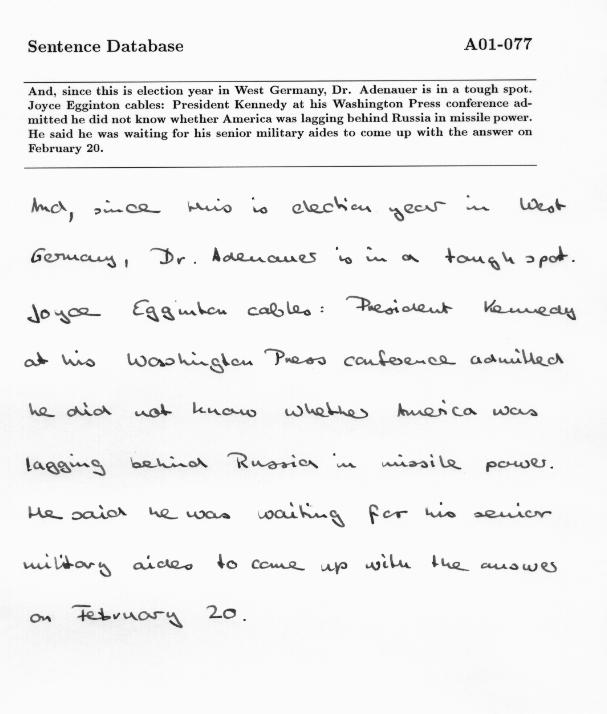 Sentence Database A01-077
And, since this is election year in West Germany, Dr. Adenauer is in a tough spot.
Joyce Egginton cables: President Kennedy at his Washington Press conference ad-
mitted he did not know whether America was lagging behind Russia in missile power.
He said he was waiting for his senior military aides to come up with the answer on
February 20.
And, since this is election year in West
Germany, Dr. Adenauer is in a tough spot.
Joyce Egginton cables: President Kennedy
at his Washington Press conference admitted
he did not know whether America was
lagging behind Russia in missile power.
He said he was waiting for his senior
military aides to come up with the answer
on February 20.